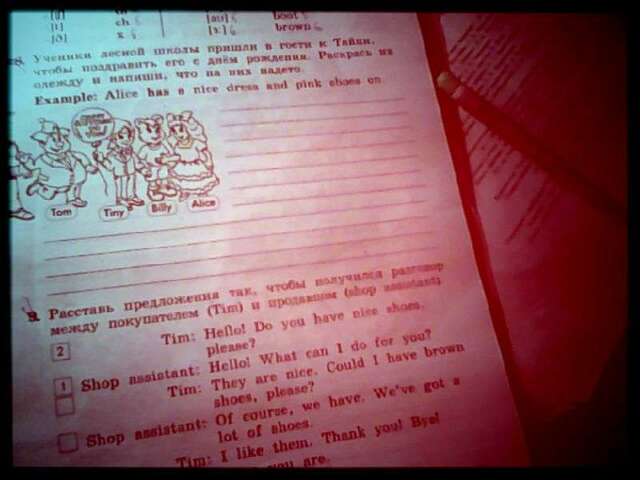 ch
x
[au]
boot
brown
Ученики лесной школы пришли в гости к Тайни,
чтобы поздравить его с днём рождения. Раскрась их
одежду и напиши, что на них надето.
Example: Alice has a nice dress and pink shoes on.
Tom
Tiny
Billy
Alice
Расставь предложения так, чтобы получился разговор
между покупателем (Tim) и продавцом (shop assistant).
2 Tim: Hello! Do you have nice shoes,
please?
1 Shop assistant: Hello! What can I do for you?
Tim: They are nice. Could I have brown
shoes, please?
Shop assistant: Of course, we have. We've got a
lot of shoes.
Tim: I like them. Thank you! Bye!
you are.